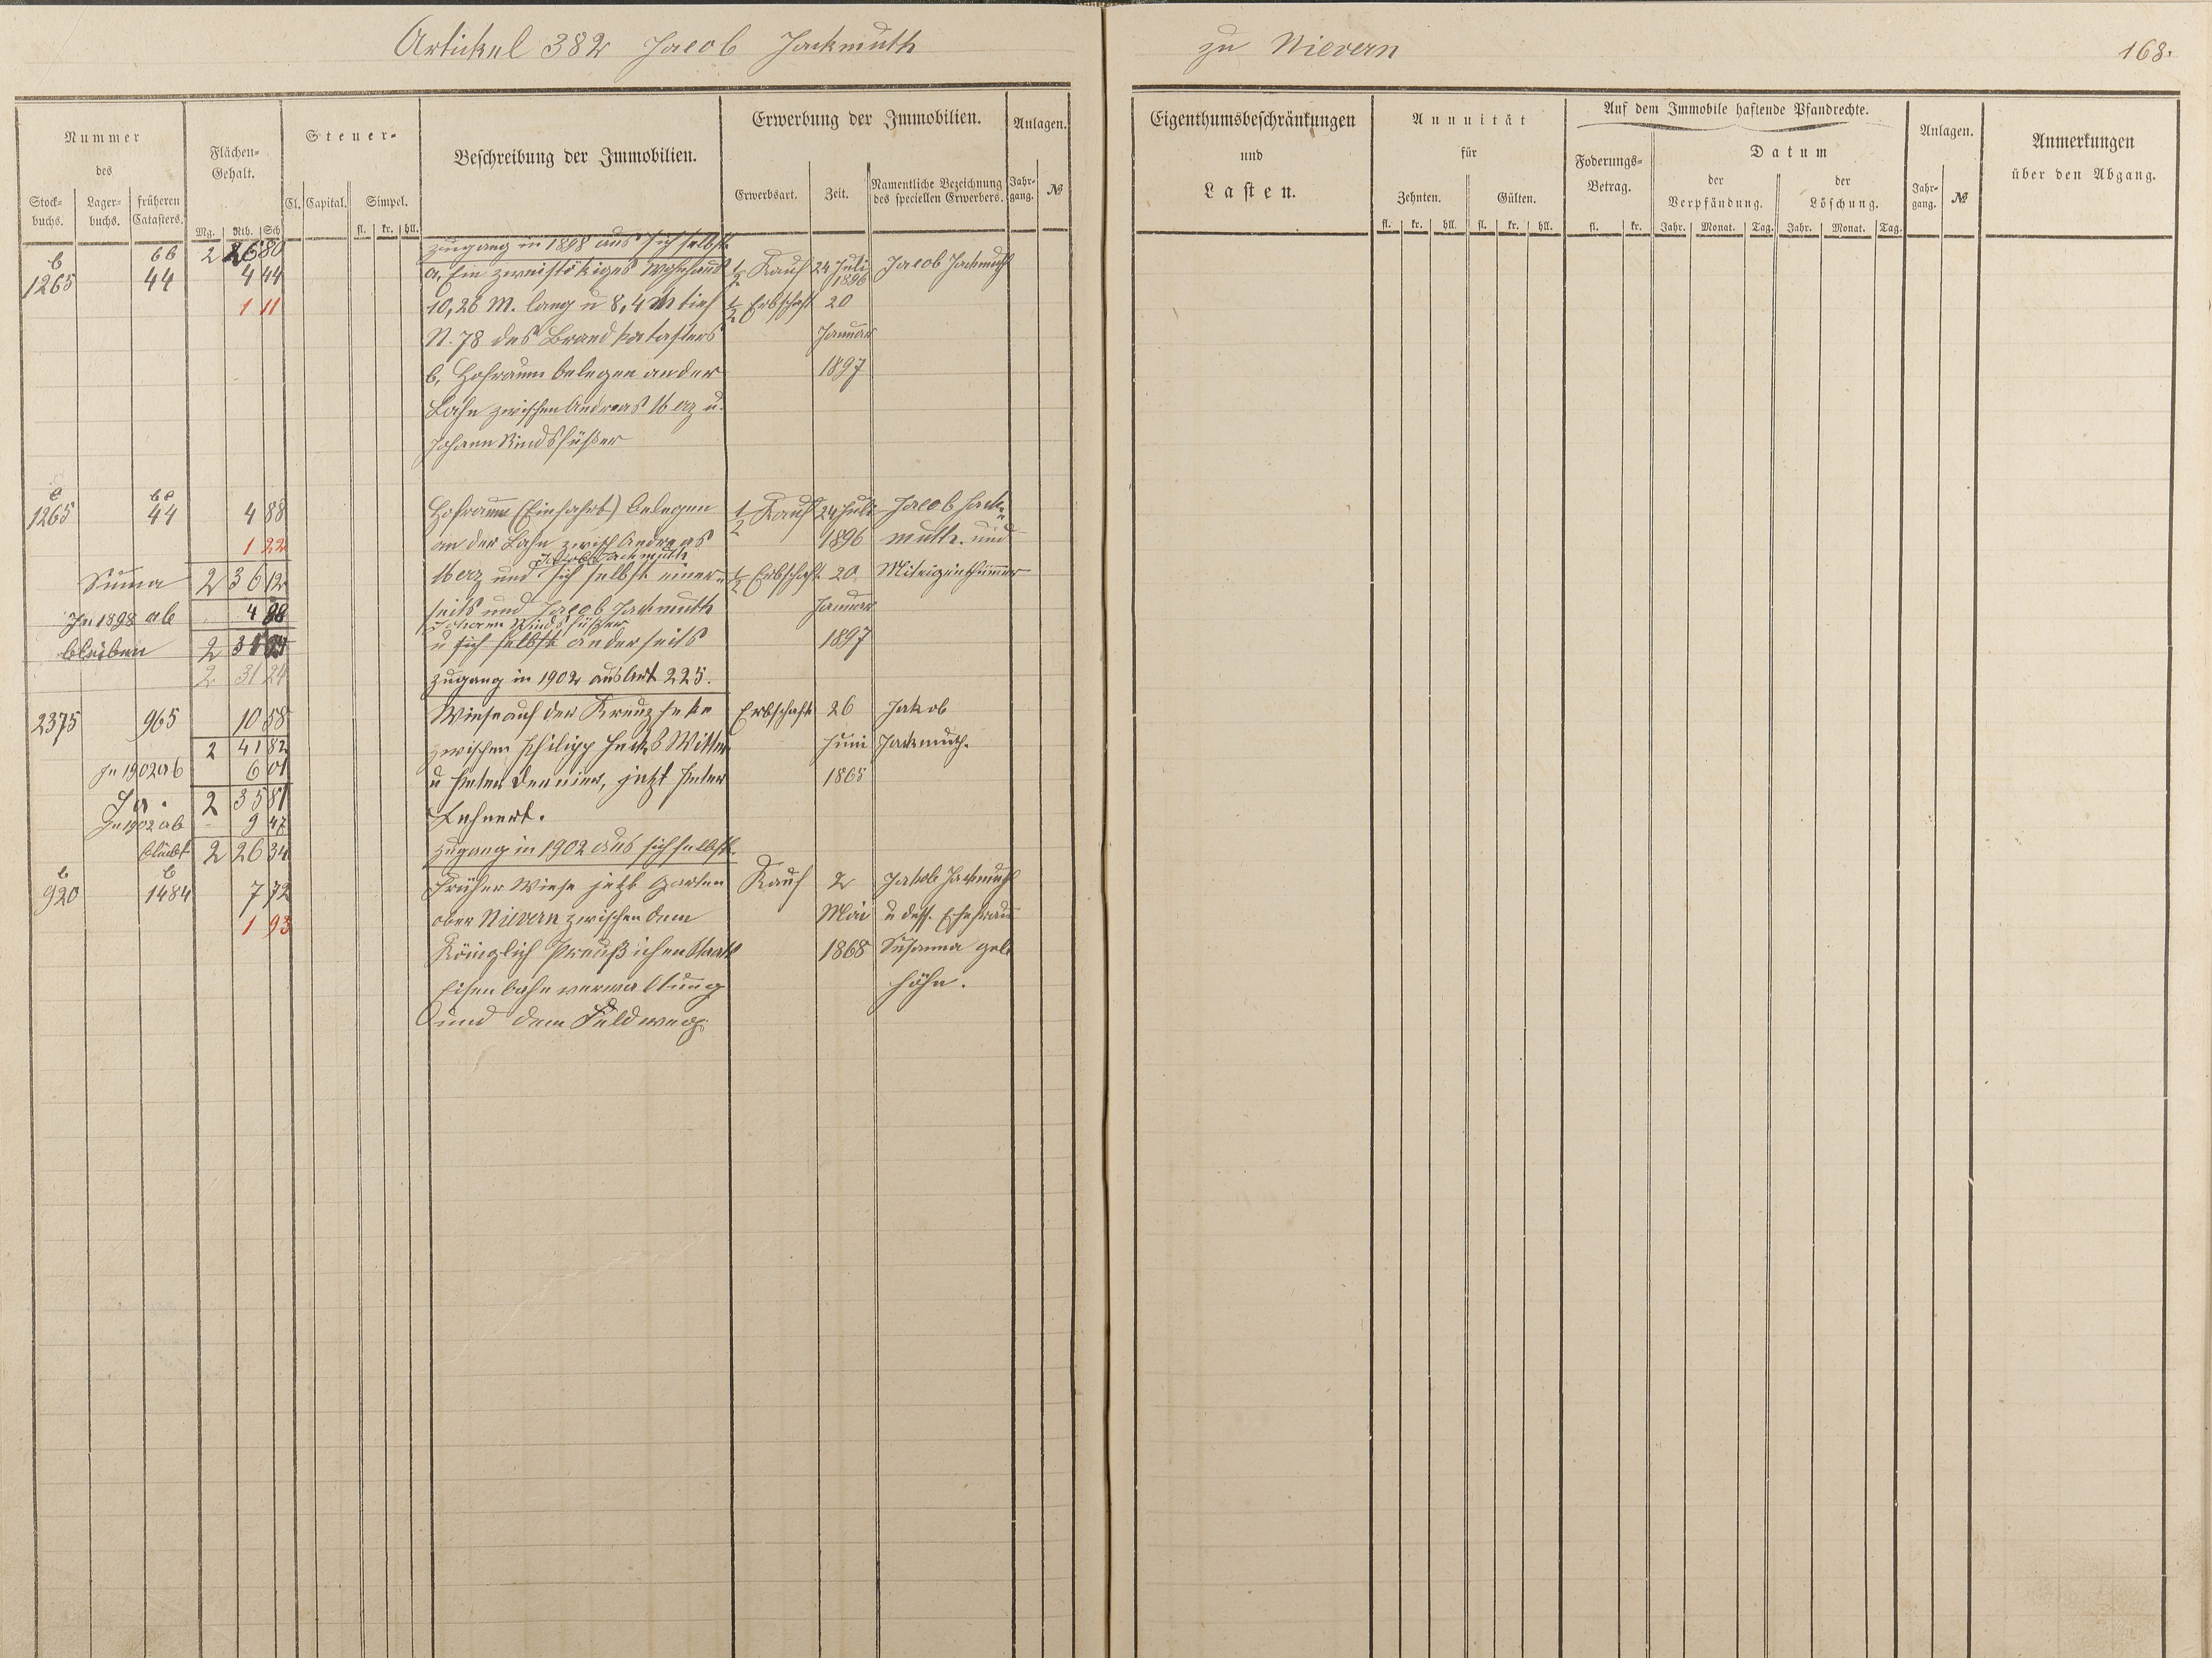 Artikel 382 Jacob Jackmuth zu Nievern 168.
Nummer
des
Stock-
buchs.
Lager-
buchs.
früheren
Catasters.
Flächen-
Gehalt.
Mg. Rth. Sch
Steuer-
Cl. Capital. Simpel.
fl. kr. hll.
Beschreibung der Immobilien.
Erwerbung der Immobilien.
Erwerbsart. Zeit.
Namentliche Bezeichnung
des speciellen Erwerbers.
Anlagen.
Jahr-
gang. №
Eigenthumsbeschränkungen
und
Lasten.
Annuität
für
Zehnten. Gülten.
fl. kr. hll. fl. kr. hll.
Auf dem Immobile haftende Pfandrechte.
Foderungs-
Betrag.
fl. kr.
Datum
der
Verpfändung.
der
Löschung.
Jahr. Monat. Tag. Jahr. Monat. Tag.
Anlagen.
Jahr-
gang. №
Anmerkungen
über den Abgang.
Zugang in 1898 aus sich selbst
b 66 2 26 80
1265 44 4 44 a, Ein zweistökiges Wohnhaus 1/2 Kauf 24 Juli 1896 Jacob Jackmuth
1 11 10,26 M. lang u 8,4 M tief 1/2 Erbschaft 20
N. 78 des Brandkatasters Januar
b, Hofraum belegen an der 1897
Lahn zwischen Andreas Merz u.
Johann Rindsfüßer
c bc
1265 44 4 88 Hofraum (Einfahrt) belegen 1/2 Kauf 24 Juli Jacob Jack-
1 22 an der Lahn zwisch Andreas 1896 muth und
Jakob Jackmuth
Suma 2 36 12 Merz und sich selbst einer- 1/2 Erbschaft 20 Miteigenthümer
In 1898 ab 4 88 seits und Jacob Jackmuth Januar
Johann Rindsfüßer
bleiben 2 31 24 u sich selbst anderseits 1897
2 31 24 Zugang in 1902 aus Art 225.
2375 965 10 58 Wiese auf der Kreuzheke Erbschaft 26 Jakob
2 41 82 zwischen Philipp Hecks Wittwe Juni Jackmuth.
In 1902 ab 6 01 u Peter Dernier, jetzt Peter 1865
2 35 81 Lehnert.
In 1902 ab 9 47
bleibt 2 26 34 Zugang in 1902 aus sich selbst.
b b
920 1484 7 72 Früher Wiese jetzt Garten Kauf 2 Jakob Jackmuth
1 93 ober Nievern zwischen dem Mai u dess. Ehefrau
Königlich Preußichen Staats 1868 Susanna geb
Eisenbahnverwaltung Höhn.
und dem Feldweg.